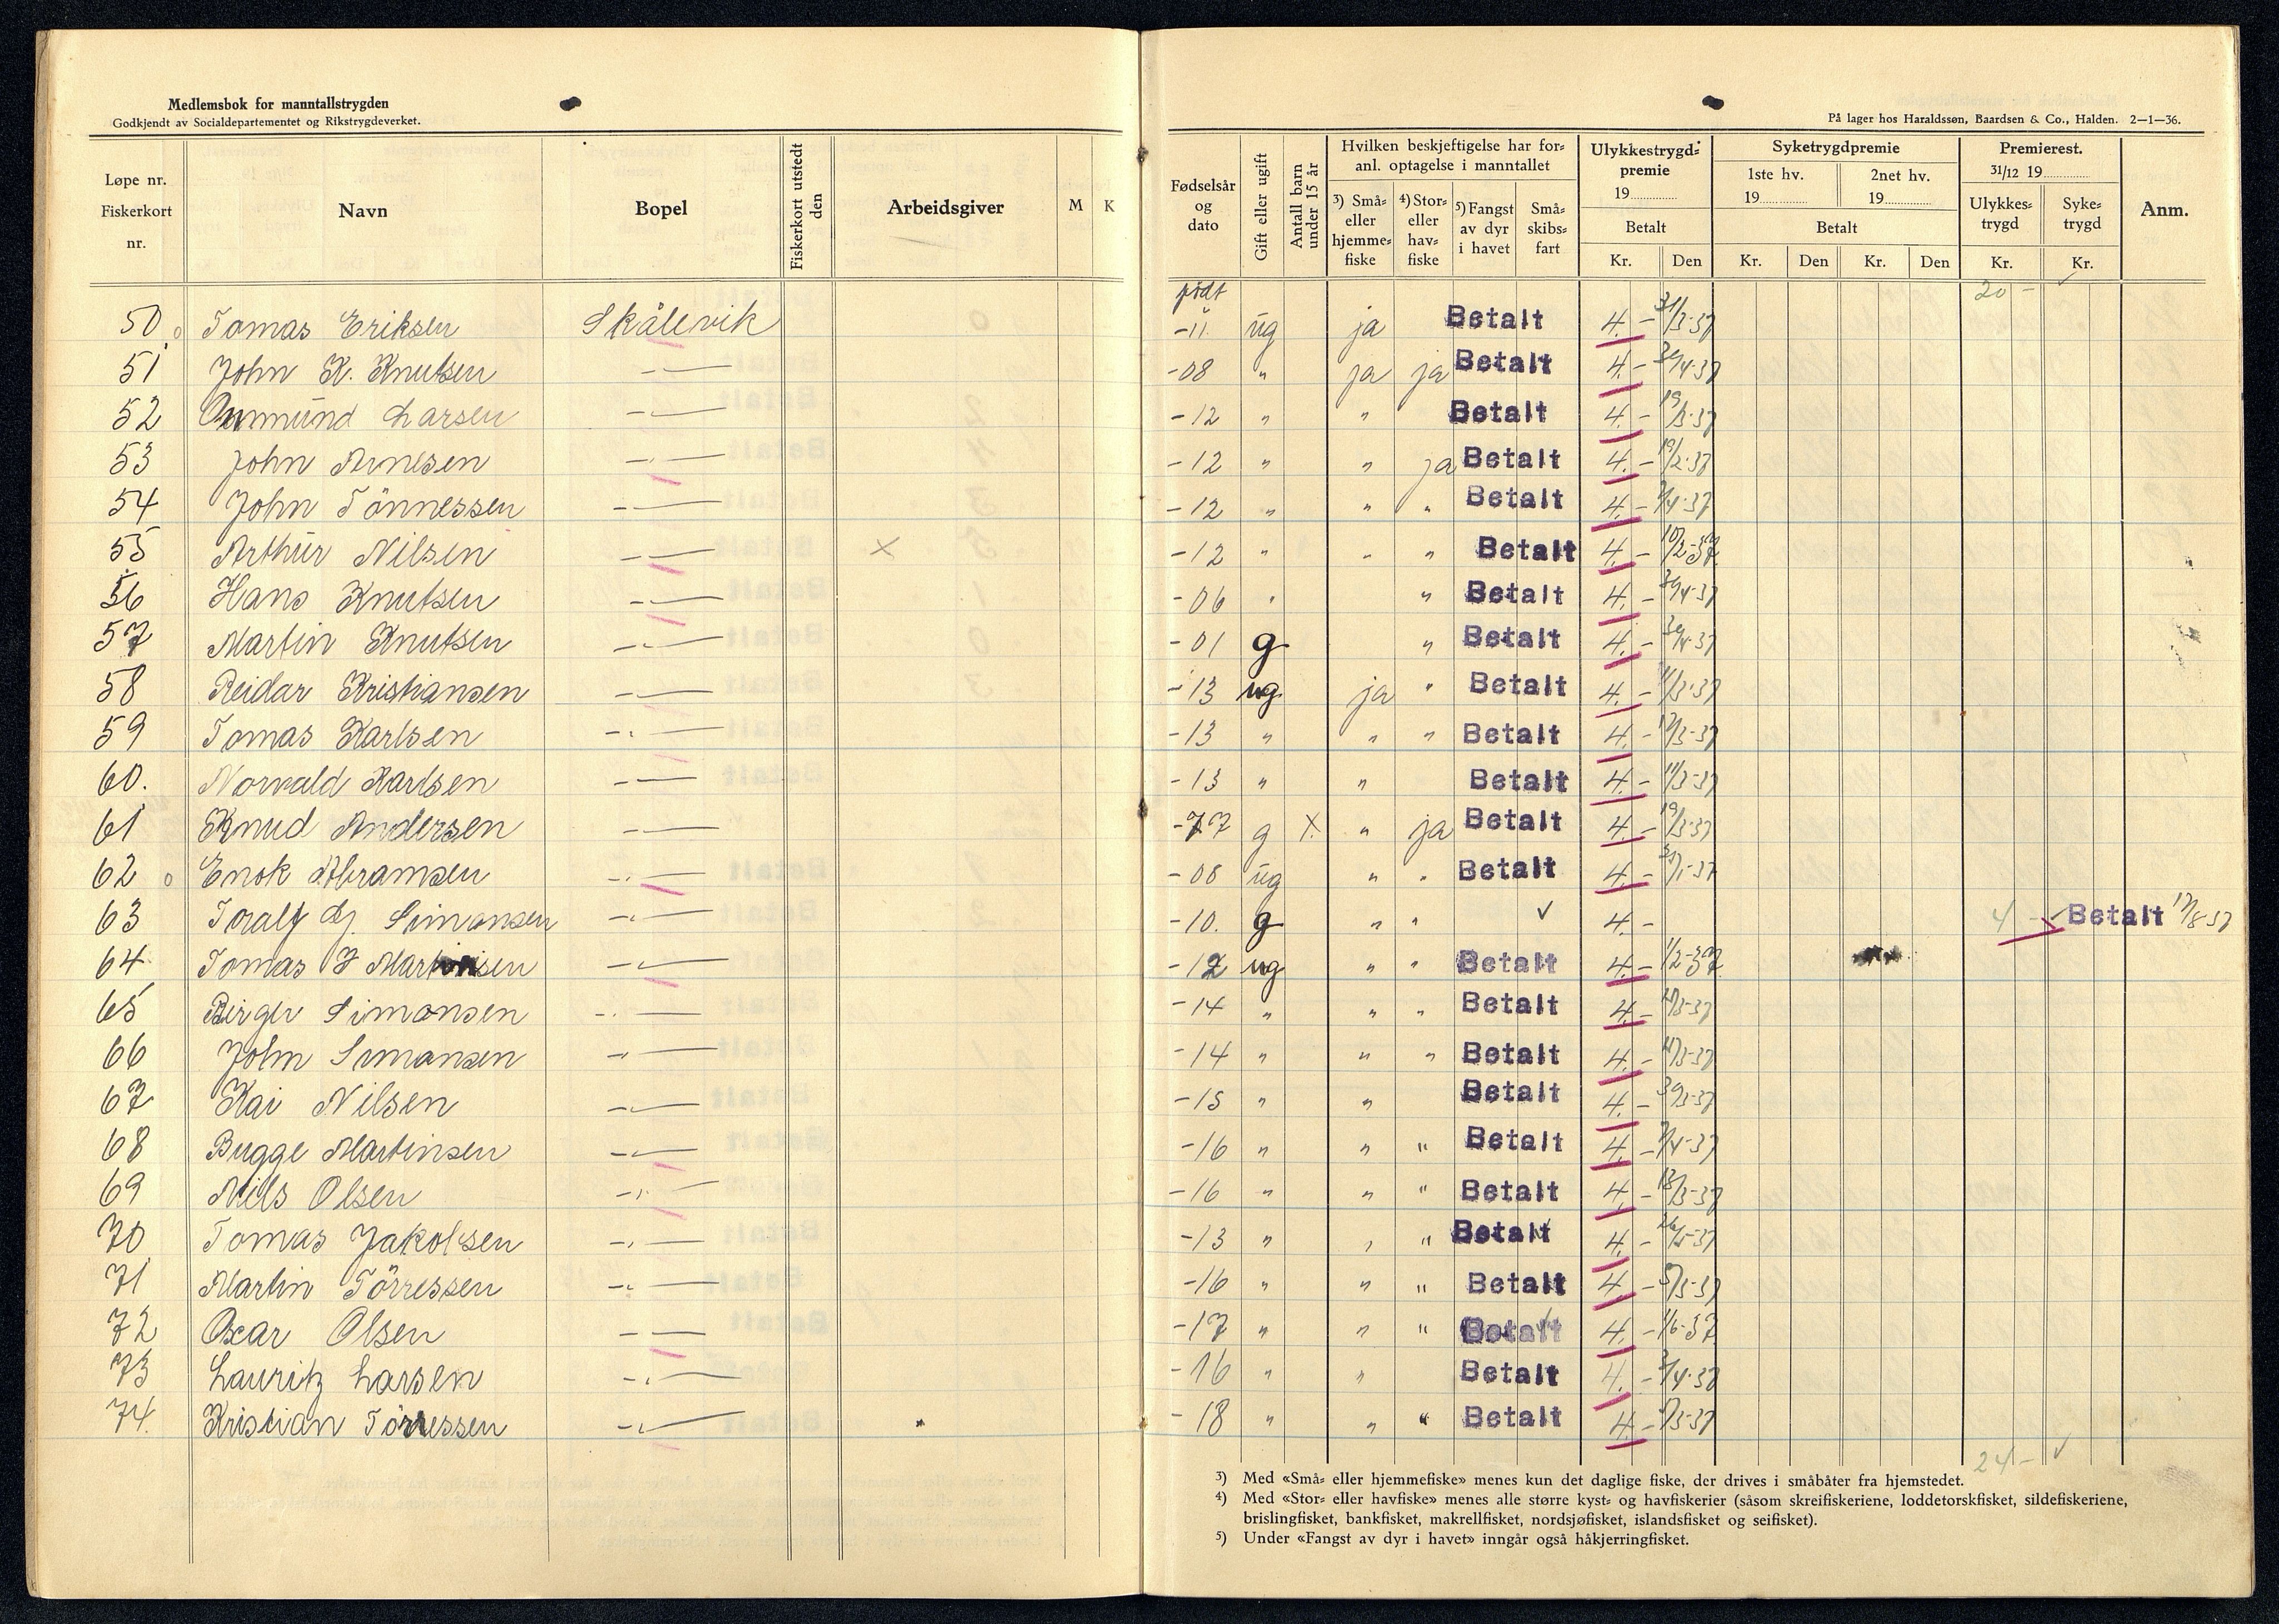 Medlemsbok for manntallstrygden
Godkjendt av Socialdepartementet og Rikstrygdeverket.
På lager hos Haraldssøn, Baardsen & Co., Halden. 2—1—36.
Løpe nr. Fiskerkort nr. Navn Bopel Fiskerkort utstedt den Arbeidsgiver M K
Fødselsår og dato Gift eller ugift Antall barn under 15 år Hvilken beskjeftigelse har foranl. optagelse i manntallet Ulykkestrygdpremie 19 Syketrygdpremie Premierest. 31/12 19 Anm.
3) Små- eller hjemmefiske 4) Stor- eller havfiske 5) Fangst av dyr i havet Småskibsfart Betalt 1ste hv. 19 2net hv. 19 Betalt Ulykkestrygd Syketrygd
Kr. Den Kr. Den Kr. Den Kr. Kr.
født 20 -
50 Tomas Eriksen Skålevik -11 ug ja Betalt 4.- 31/3-37
51 John K. Knutsen -"- -08 " ja ja Betalt 4.- 30/4-37
52 Gunmund Larsen -"- -12 " " Betalt 4.- 19/3-37
53 John Arnesen -"- -12 " " ja Betalt 4.- 19/2-37
54 John Tönnessen -"- -12 " " " Betalt 4.- 7/4-37
55 Arthur Nilsen -"- X -12 " " " Betalt 4.- 10/2-37
56 Hans Knutsen -"- -06 " " Betalt 4.- 30/4-37
57 Martin Knutsen -"- -01 g " Betalt 4.- 30/4-37
58 Reidar Kristiansen -"- -13 ug ja " Betalt 4.- 11/3-37
59 Tomas Karlsen -"- -13 " " " Betalt 4.- 17/3-37
60. Norvald Karlsen -"- -13 " " Betalt 4.- 11/3-37
61 Knud Andersen -"- -77 g X " ja Betalt 4.- 19/3-37
62 Enok Abramsen -"- -08 ug " " Betalt 4.-
63 Toralf Simonsen -"- -10. g " " ✓ 4.- 4 - Betalt 17/8-37
64 Tomas J Martinsen -"- -12 ug " " Betalt 4.- 1/2-37
65 Birger Simonsen -"- -14 " " " Betalt 4.-
66 John Simonsen -"- -14 " " " Betalt 4.-
67 Kai Nilsen -"- -15 " " Betalt 4.-
68 Bugge Martinsen -"- -16 " " " Betalt 4.- 7/4-37
69 Nils Olsen -"- -16 " " " Betalt 4.- 18/3-37
70 Tomas Jakobsen -"- -13 " " " Betalt 4.-
71 Martin Törressen -"- -16 " " " Betalt 4.-
72 Oscar Olsen -"- -17 " " " Betalt 4.- 1/6-37
73 Lauritz Larsen -"- -16 " " Betalt 4.-
74. Kristian Törressen -"- -18 " " " Betalt 4.-
24 - ✓
3) Med «Små- eller hjemmefiske» menes kun det daglige fiske, der drives i småbåter fra hjemstedet.
4) Med «Stor- eller havfiske» menes alle større kyst- og havfiskerier (såsom skreifiskeriene, loddetorskfisket, sildefiskeriene,
brislingfisket, bankfisket, makrellfisket, nordsjøfisket, islandsfisket og seifisket).
5) Under «Fangst av dyr i havet» inngår også håkjerringfisket.